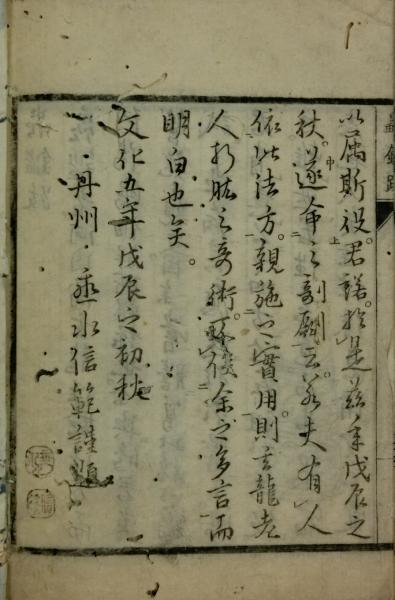 以属斯役。君諾。於是茲年戊辰之
秋。遂命之剞劂云。若夫有人
依此法方。親施之實用。則玄龍老
人折肱之奇術。不俟余之多言而
明白也矣。
文化五年戊辰之初秋
丹州 垂水信範謹題